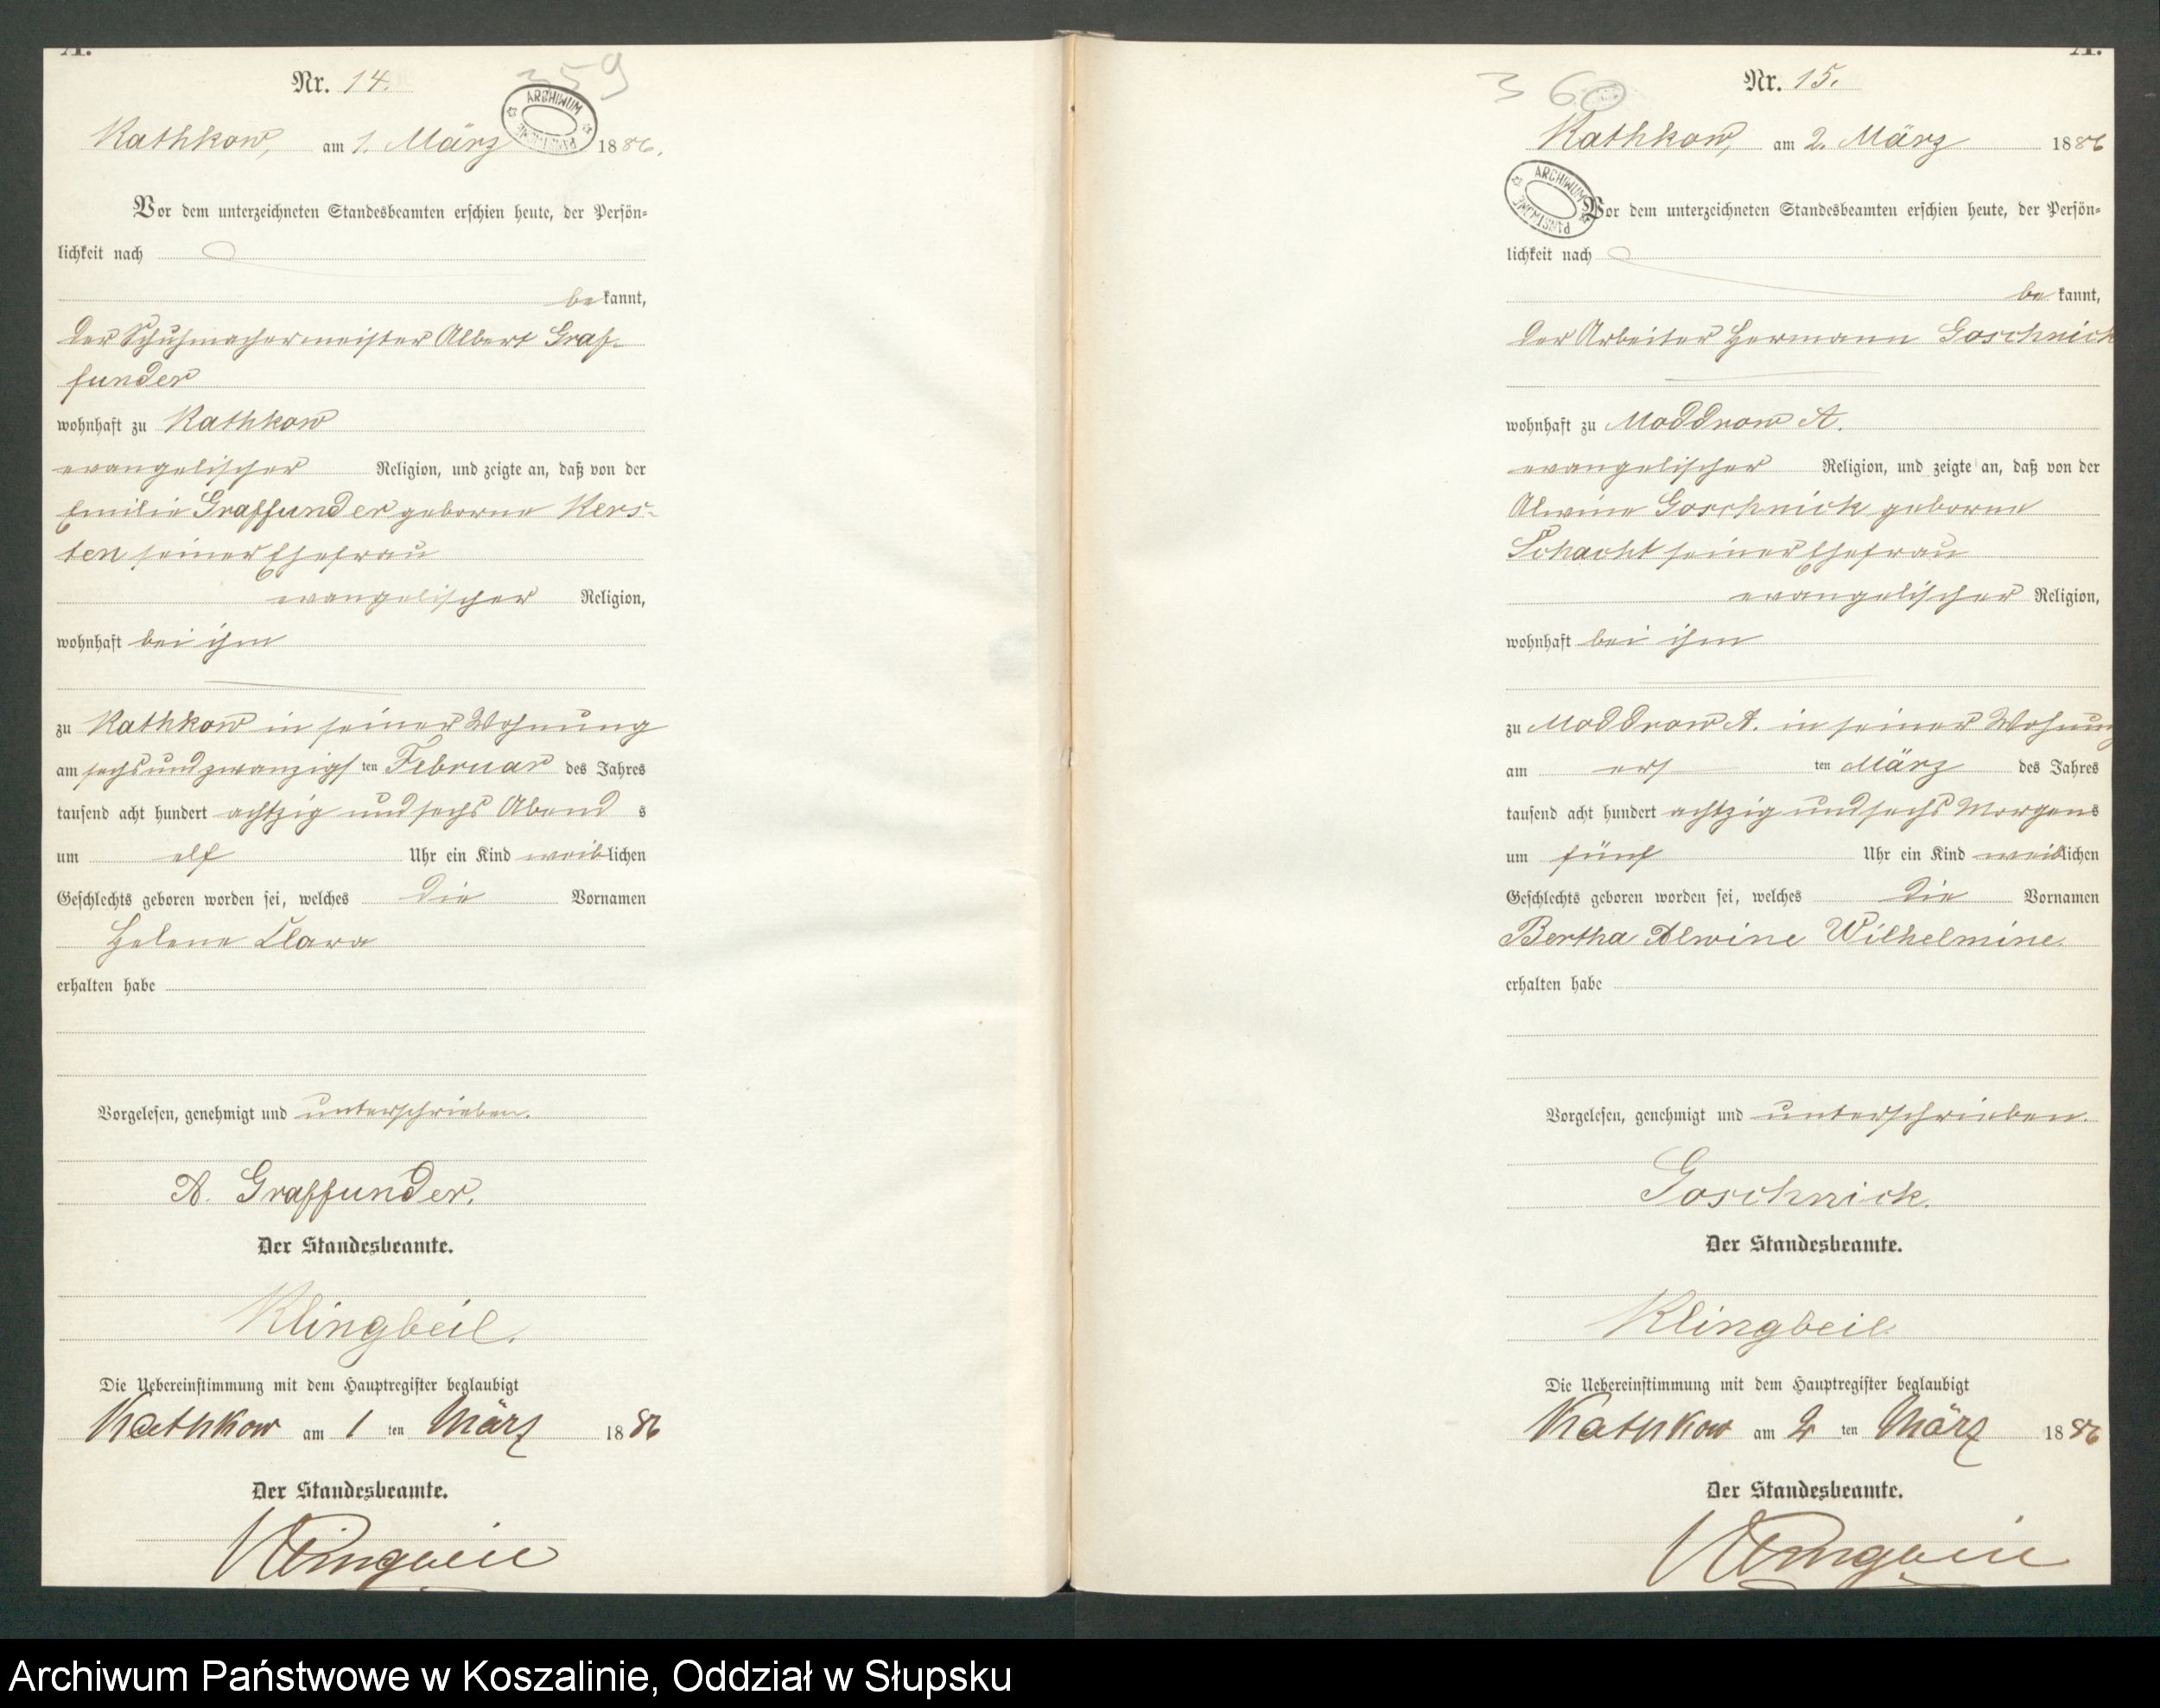 A.
Nr. 14.
359
ARCHIWUM PAŃSTWOWE
Kathkow, am 1. März 1886.
Vor dem unterzeichneten Standesbeamten erschien heute, der Persön-
lichkeit nach
be kannt,
der Schuhmachermeister Albert Graf-
funder
wohnhaft zu Kathkow
evangelischer Religion, und zeigte an, daß von der
Emilie Graffunder geborne Kers-
ten seiner Ehefrau
evangelischer Religion,
wohnhaft bei ihm
zu Kathkow in seiner Wohnung
am sechsundzwanzigsten Februar des Jahres
tausend acht hundert achtzig und sechs Abend s
um elf Uhr ein Kind weiblichen
Geschlechts geboren worden sei, welches die Vornamen
Helene Clara
erhalten habe
Vorgelesen, genehmigt und unterschrieben.
A. Graffunder.
Der Standesbeamte.
Klingbeil.
Die Uebereinstimmung mit dem Hauptregister beglaubigt
Kathkow am 1 ten März 1886
Der Standesbeamte.
Klingbeil
A.
Nr. 15.
360
Kathkow, am 2. März 1886
ARCHIWUM PAŃSTWOWE
Vor dem unterzeichneten Standesbeamten erschien heute, der Persön-
lichkeit nach
be kannt,
der Arbeiter Hermann Goschnick
wohnhaft zu Moddrow A.
evangelischer Religion, und zeigte an, daß von der
Alwine Goschnick geborne
Schacht seiner Ehefrau
evangelischer Religion,
wohnhaft bei ihm
zu Moddrow A. in seiner Wohnung
am ersten März des Jahres
tausend acht hundert achtzig und sechs Morgens
um fünf Uhr ein Kind weiblichen
Geschlechts geboren worden sei, welches die Vornamen
Bertha Alwine Wilhelmine.
erhalten habe
Vorgelesen, genehmigt und unterschrieben.
Goschnick.
Der Standesbeamte.
Klingbeil.
Die Uebereinstimmung mit dem Hauptregister beglaubigt
Kathkow am 2 ten März 1886
Der Standesbeamte.
Klingbeil
Archiwum Państwowe w Koszalinie, Oddział w Słupsku